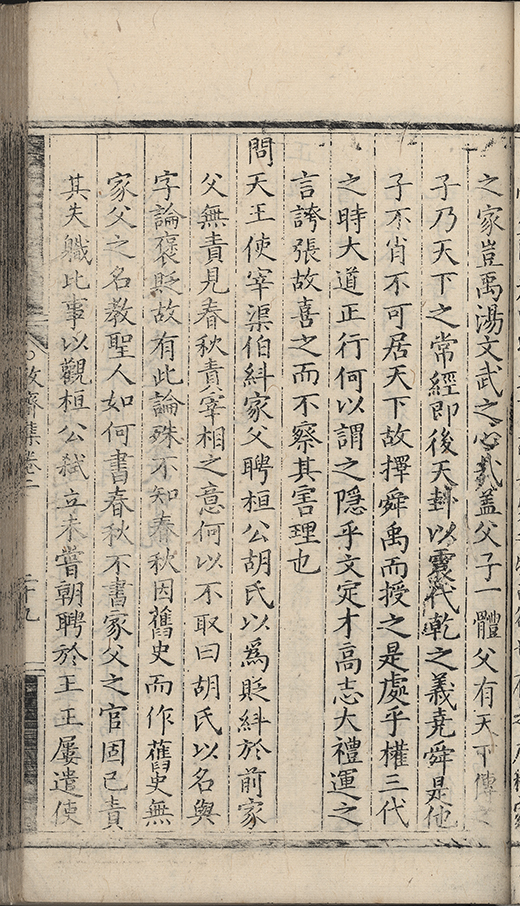 之家豈禹湯文武之心哉盖父子一體父有天下傳之
子乃天下之常經即後天卦以震代乾之義堯舜是他
子不肖不可居天下故擇舜禹而授之是處乎權三代
之時大道正行何以謂之隱乎文定才高志大禮運之
言誇張故喜之而不察其害理也
問天王使宰渠伯糾家父聘桓公胡氏以爲貶糾於前家
父無責見春秋責宰相之意何以不取曰胡氏以名與
字論褒貶故有此論殊不知春秋因舊史而作舊史無
家父之名教聖人如何書春秋不書家父之官固已責
其失職此事以觀桓公弑立未嘗朝聘於王正屢遣使
敬齋集卷二
二十九